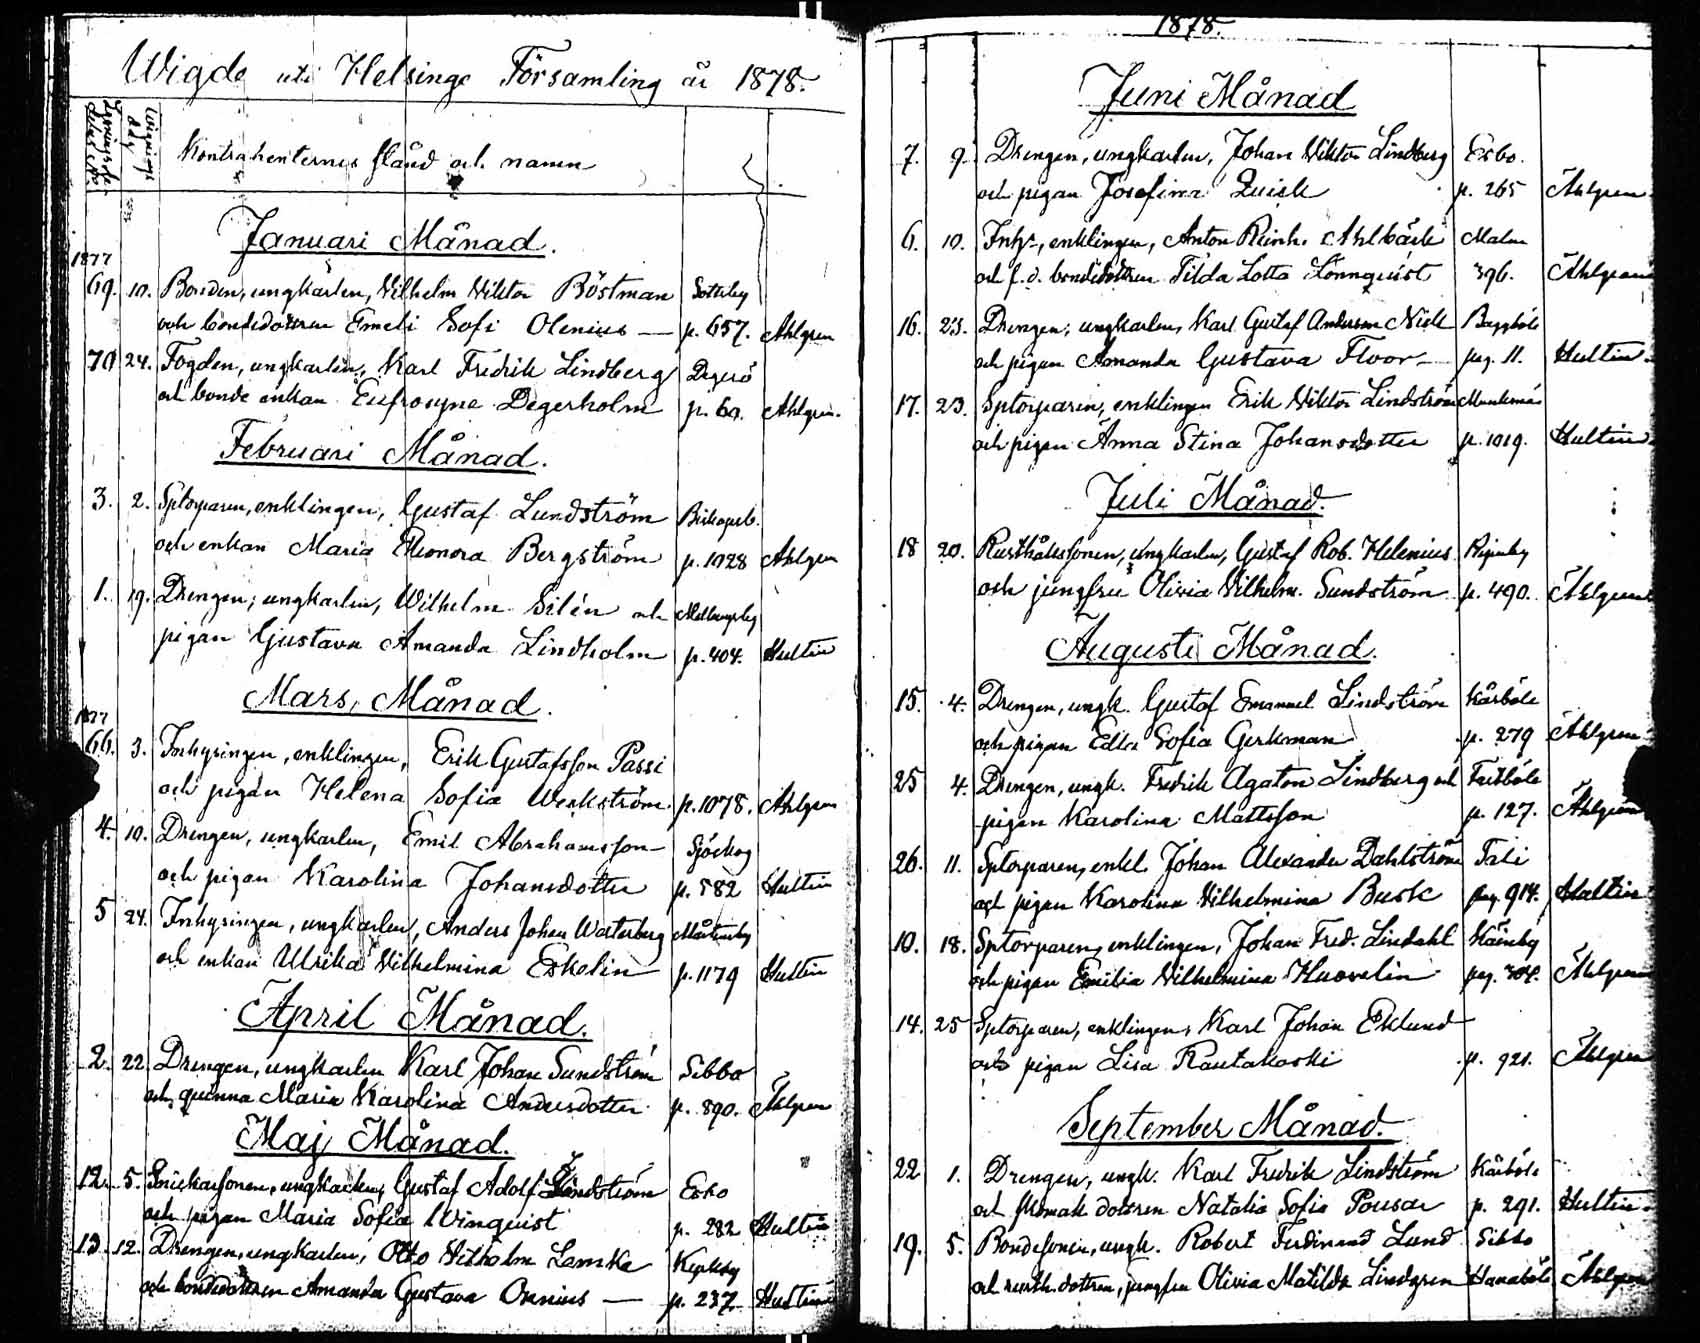 Wigde uti Helsinge Församling år 1878.
Kontrahenternes stånd och namn
Januari Månad.
1877
69. 10. Bonden, ungkarlen, Wilhelm Viktor Böstman Sotteby
och bondedottren Emeli Sofi Olenius — p. 657. Ahlgren
70 24. Fogden, ungkarlen, Karl Fredrik Lindberg Degerö
och bonde enkan Eufrosyne Degerholm p. 60. Ahlgren.
Februari Månad.
3. 2. Sptorparen, enklingen, Gustaf Lundström
och enkan Maria Eleonora Bergström p. 1028 Ahlgren
1. 19. Drengen, ungkarlen, Wilhelm Silén och
pigan Gustava Amanda Lindholm p. 404. Hultin
Mars, Månad.
1877
66. 3. Inhysingen, enklingen, Erik Gustafsson Passi
och pigan Helena Sofia Werkström p. 1078. Ahlgren
4. 10. Drengen, ungkarlen, Emil Abrahamsson Sjöskog
och pigan Karolina Johansdotter p. 582 Hultin
5 24. Inhysingen, ungkarlen, Anders Johan Westerberg Mårtensby
och enkan Ulrika Vilhelmina Eskolin p. 1179 Hultin
April Månad.
2. 22. Drengen, ungkarlen Karl Johan Sundström Sibbo
och qvinna Maria Karolina Andersdotter p. 890. Ahlgren
Maj Månad.
12. 5. ungkarlen, Gustaf Adolf Esbo
och pigan Maria Sofia Winqvist p. 282 Hultin
13. 12. Drengen, ungkarlen, Otto Vilhelm Lemke Kyrkby
och bondedottren Amanda Gustava Onnius — p. 237 Hultin
1878.
Juni Månad
7. 9. Drengen, ungkarlen, Johan Viktor Lindberg Esbo.
och pigan Josefina Quick p. 265 Ahlgren
6. 10. Inhs., enklingen, Anton Reinh. Ahlbäck Malm
och f.d. bondedottren Tilda Lotta Lönnqvist 396. Ahlgren
16. 23. Drengen, ungkarlen, Karl Gustaf Anderson Nick Baggböle
och pigan Amanda Gustava Floor — pag. 11. Hultin
17. 23. Sptorparen, enklingen Erik Viktor Lindström Munksnäs
och pigan Anna Stina Johansdotter p. 1019. Hultin
Juli Månad.
18 20. Rusthållssonen, ungkarlen, Gustaf Rob. Helenius
och jungfru Olivia Vilhelm. Sundström p. 490. Ahlgren
Augusti Månad.
15. 4. Drengen, ungk. Gustaf Emanuel Lindström Kårböle
och pigan Edla Sofia Gerkman p. 279 Ahlgren
25 4. Drengen, ungk. Fredrik Agaton Lindberg och Fastböle
pigan Karolina Mattsson p. 127. Ahlgren
26. 11. Sptorparen, enkl. Johan Alexander Dahlström Tali
och pigan Karolina Vilhelmina Busk pag. 914. Hultin
10. 18. Sptorparen, enklingen, Johan Fred. Lindahl
och pigan Emilia Vilhelmina Huovelin pag. 304. Ahlgren
14. 25 Sptorparen, enklingen, Karl Johan Eklund
och pigan Lisa Rautakoski p. 921. Ahlgren
September Månad.
22 1. Drengen, ungk. Karl Fredrik Lindström Kårböle
och dottren Natalia Sofia Pousar p. 291. Hultin
19. 5. Bondesonen, ungk. Robert Ferdinand Lund Sibbo
och rusth. dottren, jungfru Olivia Matilda Lindgren Hanaböle Ahlgren